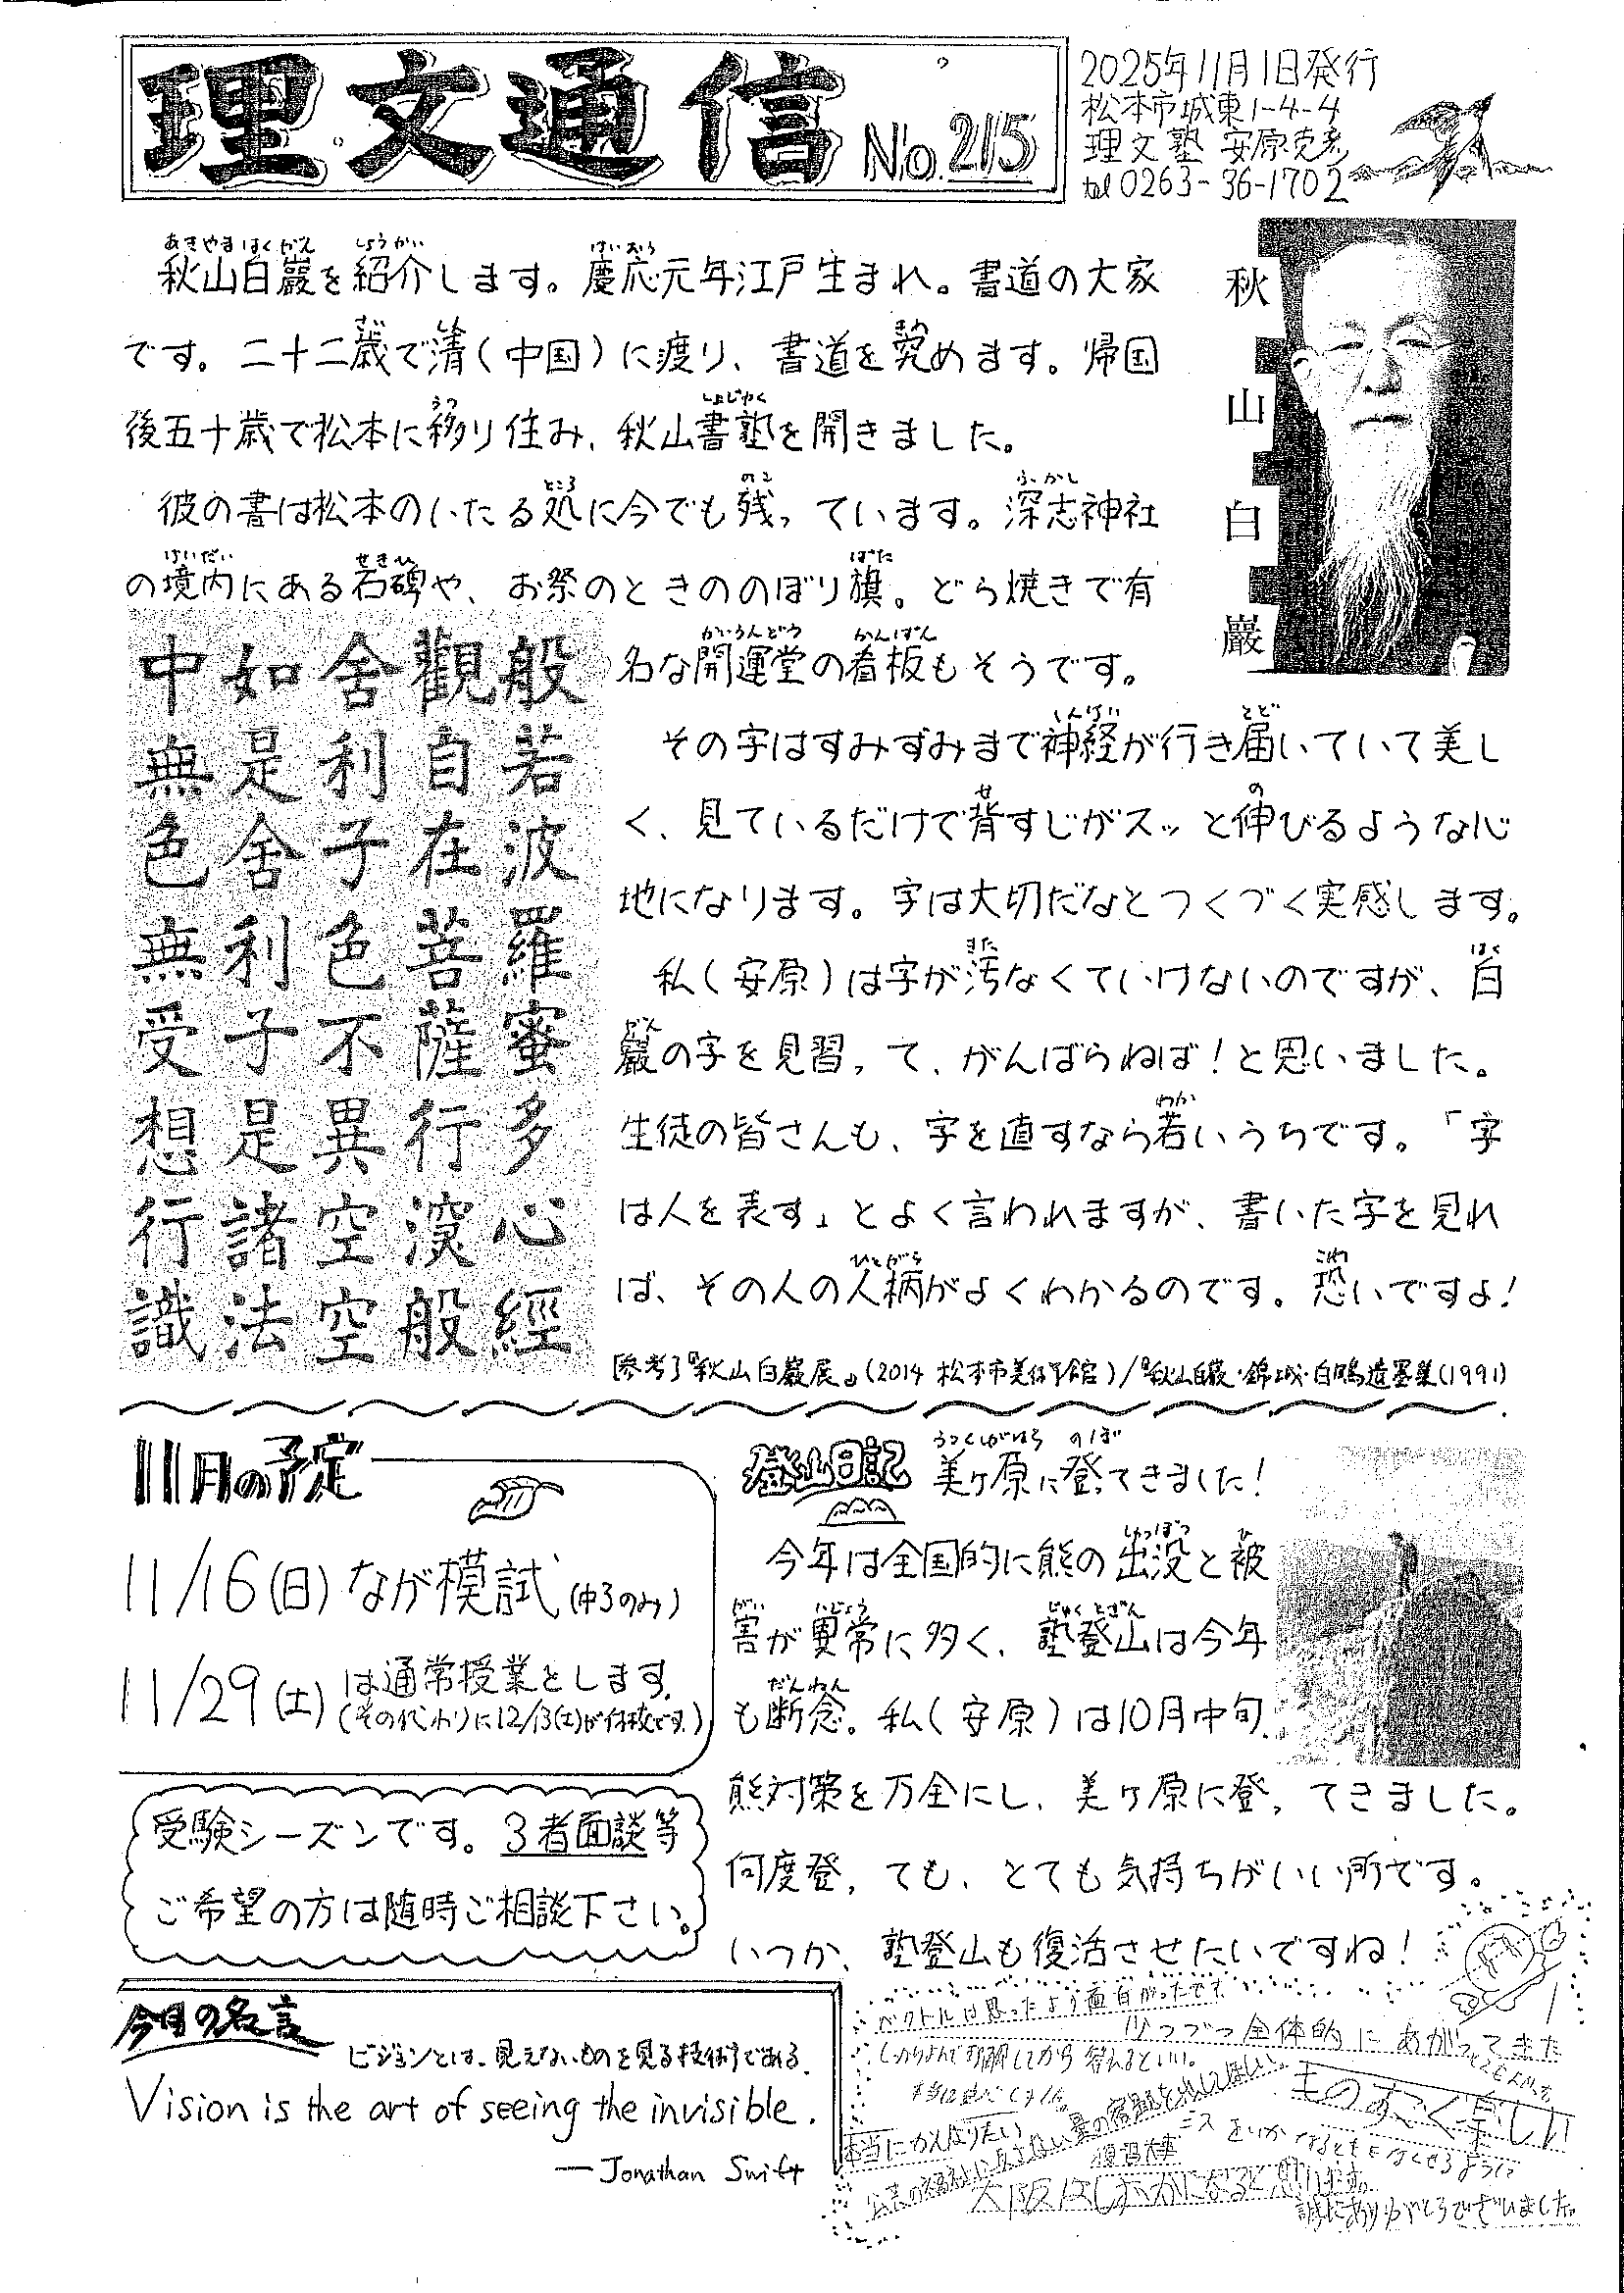 理文通信 No.215
2025年11月1日発行
松本市城東1-4-4
理文塾 安原克彦
tel 0263-36-1702
秋山白巖を紹介します。慶応元年江戸生まれ。書道の大家
です。二十二歳で清(中国)に渡り、書道を究めます。帰国
後五十歳で松本に移り住み、秋山書塾を開きました。
彼の書は松本のいたる処に今でも残っています。深志神社
の境内にある石碑や、お祭のときののぼり旗。どら焼きで有
名な開運堂の看板もそうです。
その字はすみずみまで神経が行き届いていて美し
く、見ているだけで背すじがスッと伸びるような心
地になります。字は大切だなとつくづく実感します。
私(安原)は字が汚なくていけないのですが、白
巖の字を見習って、がんばらねば!と思いました。
生徒の皆さんも、字を直すなら若いうちです。「字
は人を表す」とよく言われますが、書いた字を見れ
ば、その人の人柄がよくわかるのです。恐いですよ!
[参考]『秋山白巖展』(2014 松本市美術館)/『秋山白巖・錦城・白鴎遺墨集(1991)
秋山白巖
般若波羅蜜多心經
觀自在菩薩行深般
舍利子色不異空空
如是舍利子是諸法
中無色無受想行識
11月の予定
11/16(日)なが模試(中3のみ)
11/29(土)は通常授業とします。
(その代わりに12/13(土)が休校です。)
受験シーズンです。3者面談等
ご希望の方は随時ご相談下さい。
今月の名言
ビジョンとは、見えないものを見る技術である。
Vision is the art of seeing the invisible.
— Jonathan Swift
登山日記 美ヶ原に登ってきました!
今年は全国的に熊の出没と被
害が異常に多く、塾登山は今年
も断念。私(安原)は10月中旬
熊対策を万全にし、美ヶ原に登ってきました。
何度登っても、とても気持ちがいい所です。
いつか、塾登山も復活させたいですね!
ベクトルは思ったより面白かったです
少しづつ全体的にあがってきた
復習大事
誠にありがとうございました。